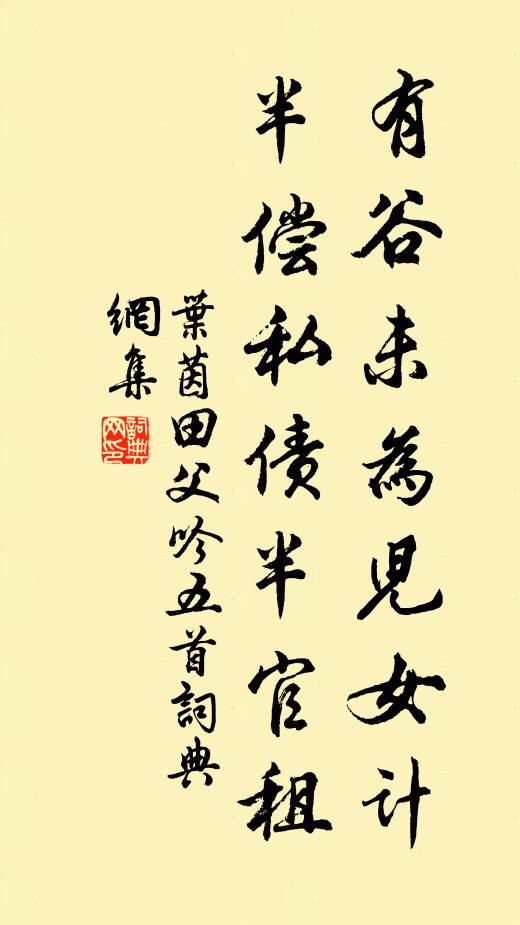 有谷未為児女计
半偿私债半官租
葉茵田父吟五首詞典
網集
詞典
网印